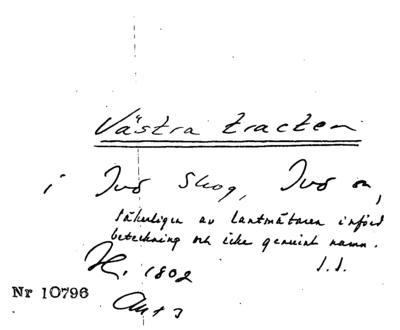 Västra tracten
i Ivö Skog, Ivö sn,
säkerligen av lantmätaren införd
beteckning och icke genuint namn.
H. 1802 J. S.
Nr 10796